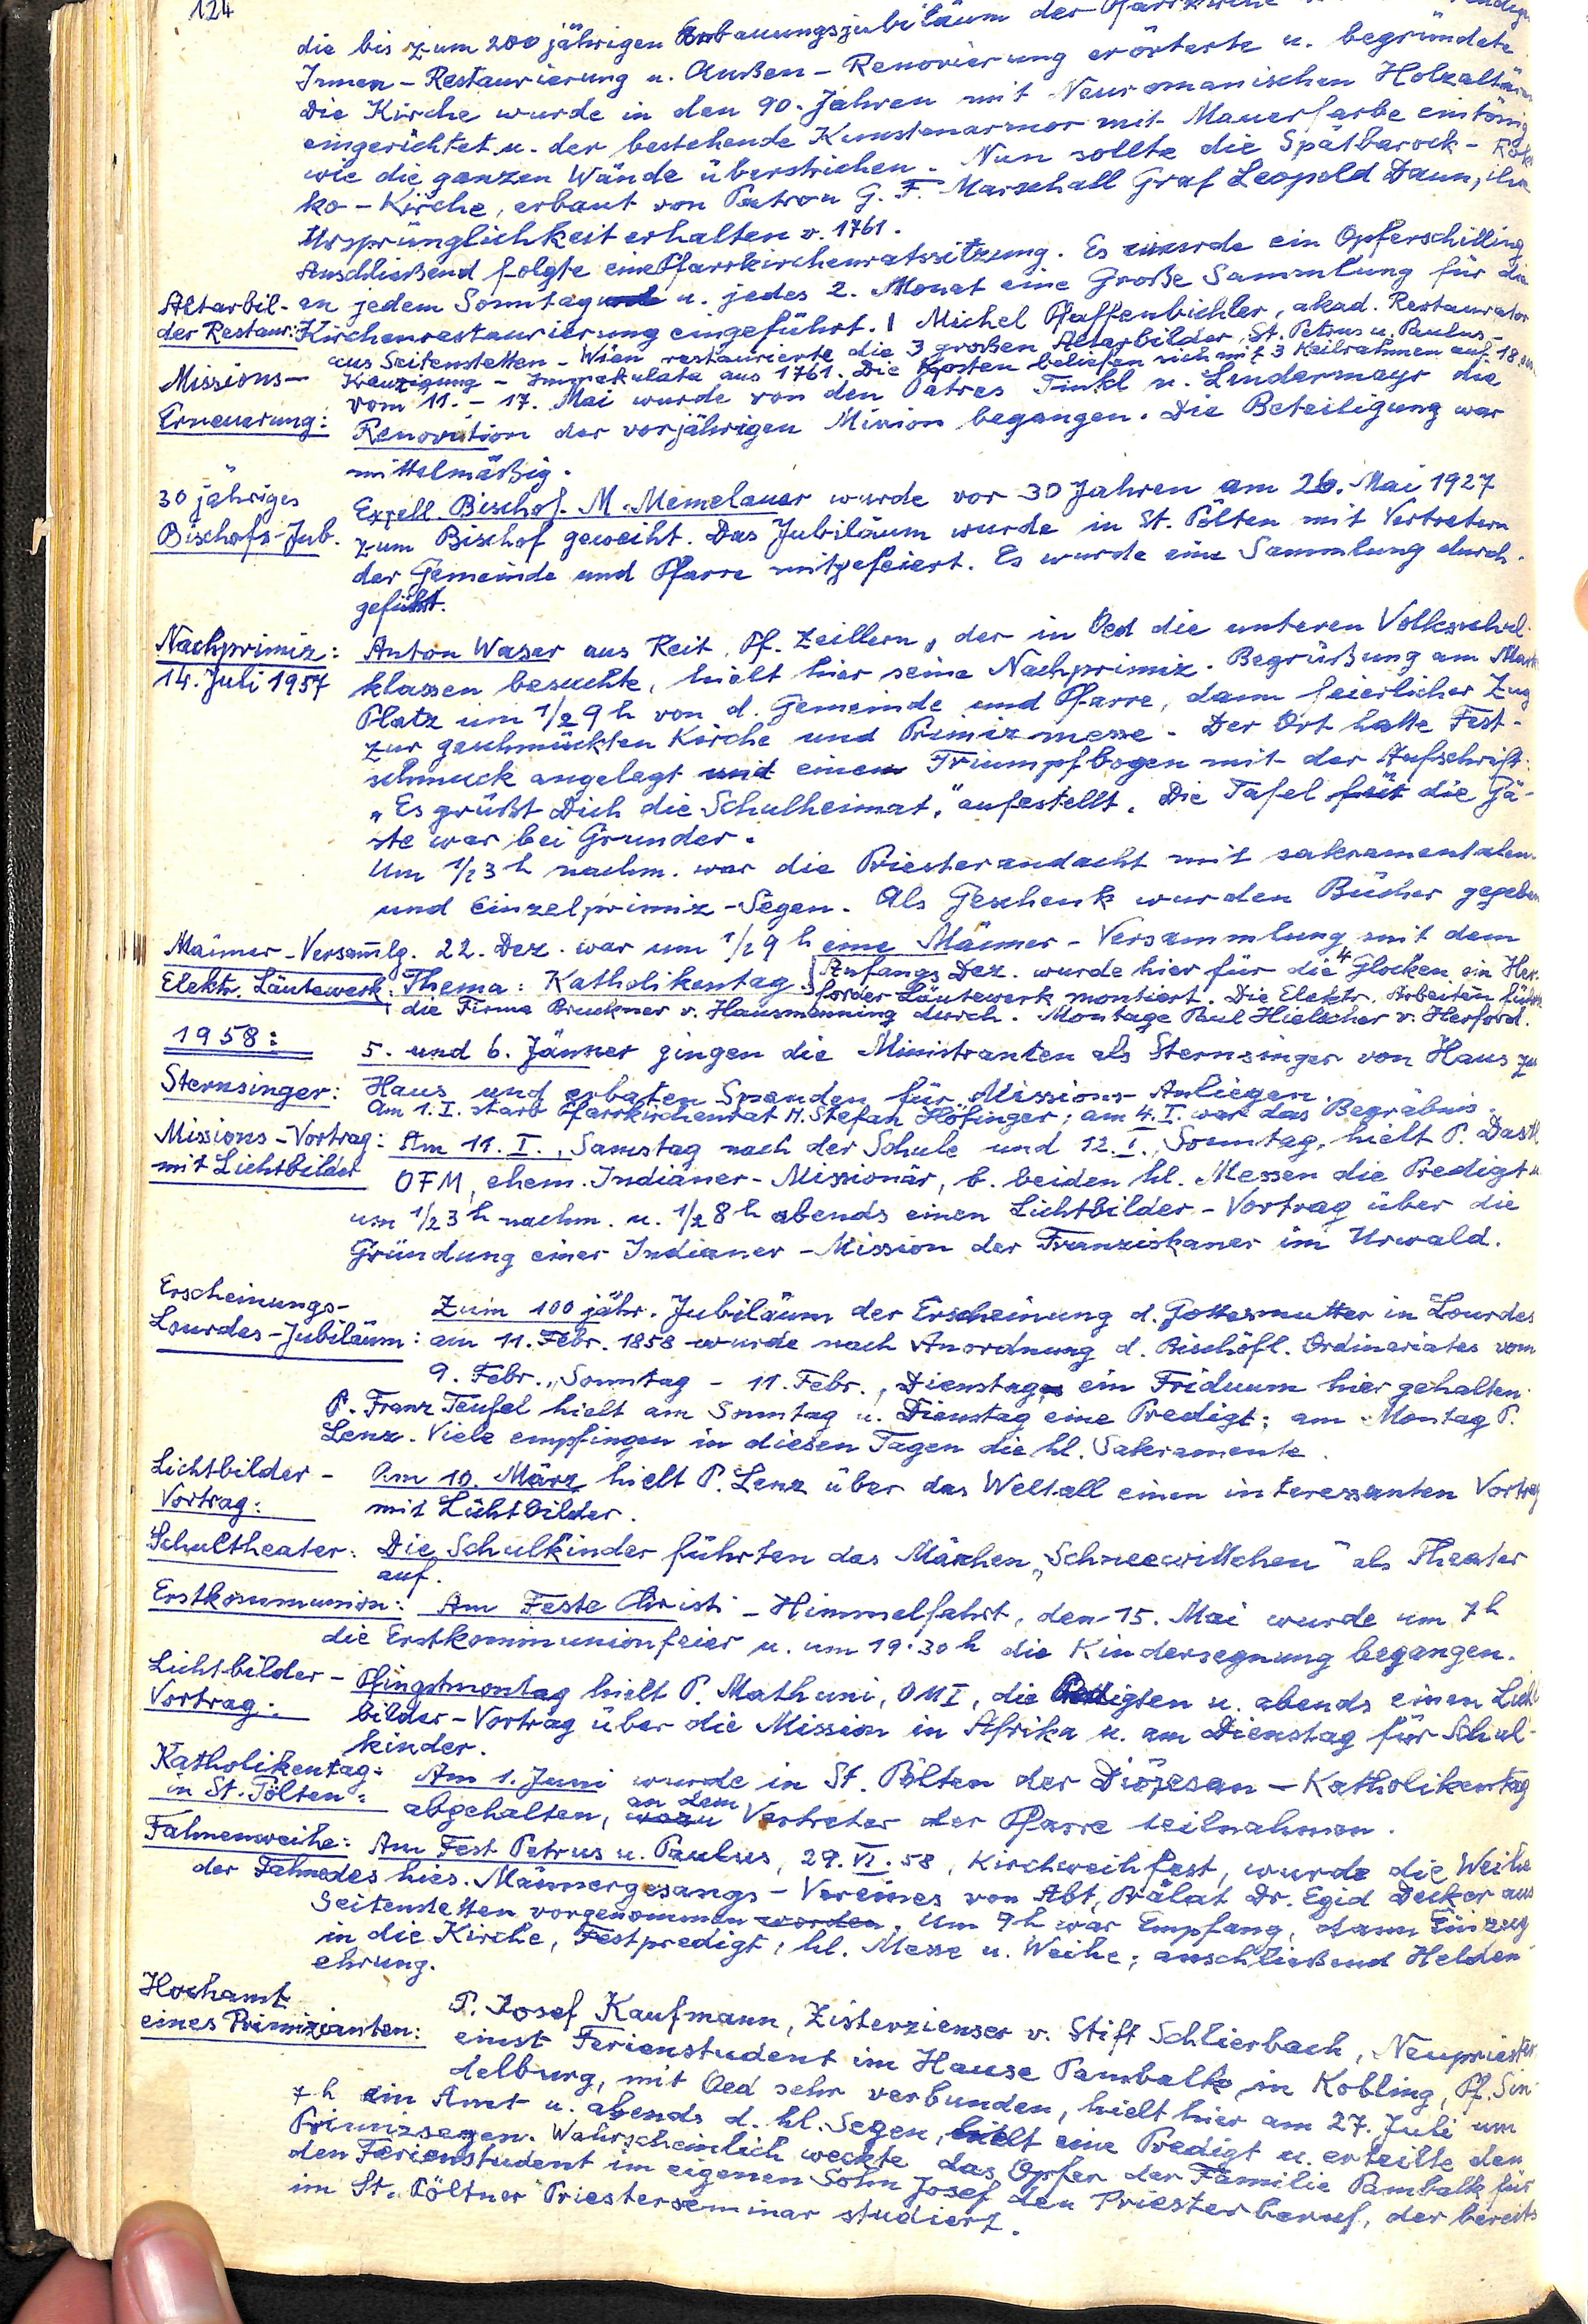 124
die bis zum 200 jährigen Erbauungsjubiläum der Pfarrkirche
Innen - Restaurierung u. Außen - Renovierung erörterte u. begründete
Die Kirche wurde in den 90. Jahren mit Neuromanischen Holzaltären
eingerichtet u. der bestehende Kunstmarmor mit Mauerfarbe eintönig
wie die ganzen Wände überstrichen. Nun sollte die Spätbarock - Roko
ko - Kirche, erbaut von Patron G. F. Marschall Graf Leopold Daun, ihre
Ursprünglichkeit erhalten v. 1761.
Anschließend folgte eine Pfarrkirchenratssitzung. Es wurde ein Opferschilling
Altarbil- an jedem Sonntag u. jedes 2. Monat eine Große Sammlung für die
der Restaur: Kirchenrestaurierung eingeführt. | Michel Pfaffenbichler, akad. Restaurator
aus Seitenstetten - Wien restaurierte die 3 großen Altarbilder, St. Petrus u. Paulus -
Kreuzigung - Immakulata aus 1761. Die Kosten beliefen sich mit 3 Keilrahmen auf 18
Missions- vom 11. - 17. Mai wurde von den Patres Tinkl u. Lindermayr die
Erneuerung: Renovation der vorjährigen Mission begangen. Die Beteiligung war
mittelmäßig.
30 jähriges Exzell. Bischof M. Memelauer wurde vor 30 Jahren am 26. Mai 1927
Bischofs-Jub. zum Bischof geweiht. Das Jubiläum wurde in St. Pölten mit Vertretern
der Gemeinde und Pfarre mitgefeiert. Es wurde eine Sammlung durch-
geführt.
Nachprimiz: Anton Waser aus Reit, Pf. Zeillern, der in Oed die unteren Volksschul-
14. Juli 1957 klassen besuchte, hielt hier seine Nachprimiz. Begrüßung am Markt
Platz um 1/2 9 h von d. Gemeinde und Pfarre, dann feierlicher Zug
zur geschmückten Kirche und Primizmesse. Der Ort hatte Fest-
schmuck angelegt und einen Triumpfbogen mit der Aufschrift:
„Es grüßt Dich die Schulheimat," aufestellt. Die Tafel für die Gä-
ste war bei Grunder.
Um 1/2 3 h nachm. war die Priesterandacht mit sakramentalen
und Einzelprimiz-Segen. Als Geschenk wurden Bücher gegeben
Männer-Versamlg. 22. Dez. war um 1/2 9 h eine Männer - Versammlung mit dem
Elektr. Läutewerk: Thema: Katholikentag. Anfangs Dez. wurde hier für die 4 Glocken ein Her-
forder Läutewerk montiert. Die Elektr. Arbeiten führte
die Firma Bruckner v. Hausmenning durch. Montage Paul Hielscher v. Herford.
1958: 5. und 6. Jänner gingen die Ministranten als Sternsinger von Haus zu
Sternsinger: Haus und erbaten Spenden für Missions-Anliegen.
Am 1. I. starb Pfarrkirchenrat H. Stefan Höfinger; am 4. I. war das Begräbnis.
Missions-Vortrag: Am 11. I., Samstag nach der Schule und 12. I., Sonntag, hielt P.
mit Lichtbilder OFM, ehem. Indianer-Missionär, b. beiden hl. Messen die Predigt u.
um 1/2 3 h nachm. u. 1/2 8 h abends einen Lichtbilder - Vortrag über die
Gründung einer Indianer - Mission der Franziskaner im Urwald.
Erscheinungs- Zum 100 jähr. Jubiläum der Erscheinung d. Gottesmutter in Lourdes
Lourdes-Jubiläum: am 11. Febr. 1858 wurde nach Anordnung d. Bischöfl. Ordinariates vom
9. Febr., Sonntag - 11. Febr., Dienstag, ein Triduum hier gehalten.
P. Franz Teufel hielt am Sonntag u. Dienstag eine Predigt; am Montag P.
Lenz. Viele empfingen in diesen Tagen die hl. Sakramente.
Lichtbilder- Am 10. März hielt P. Lenz über das Weltall einen interessanten Vortrag
Vortrag: mit Lichtbilder.
Schultheater: Die Schulkinder führten das Märchen „Schneewittchen" als Theater
auf.
Erstkommunion: Am Feste Christi - Himmelfahrt, den 15. Mai wurde um 7 h
die Erstkommunionfeier u. um 19.30 h die Kindersegnung begangen.
Lichtbilder- Pfingstmontag hielt P. Mathuni, OMI, die Predigten u. abends einen Licht
Vortrag: bilder - Vortrag über die Mission in Afrika u. am Dienstag für Schul-
kinder.
Katholikentag: Am 1. Juni wurde in St. Pölten der Diözesan - Katholikentag
in St. Pölten: abgehalten, wozu an dem Vertreter der Pfarre teilnahmen.
Fahnenweihe: Am Fest Petrus u. Paulus, 29. VI. 58, Kirchweihfest, wurde die Weihe
der Fahne des hies. Männergesangs - Vereines von Abt, Prälat Dr. Egid Decker aus
Seitenstetten vorgenommen worden. Um 7 h war Empfang, dann Einzug
in die Kirche, Festpredigt, hl. Messe u. Weihe; anschließend Helden
ehrung.
Hochamt P. Josef Kaufmann, Zisterzienser v. Stift Schlierbach, Neupriester
eines Primizianten: einst Ferienstudent im Hause Pambalk in Kobling, Pf. Sin-
delburg, mit Oed sehr verbunden, hielt hier am 27. Juli um
7 h ein Amt u. abends d. hl. Segen, hielt eine Predigt u. erteilte den
Primizsegen. Wahrscheinlich weckte das Opfer der Familie Pambalk für
den Ferienstudent im eigenen Sohn Josef den Priesterberuf, der bereits
im St. Pöltner Priesterseminar studiert.